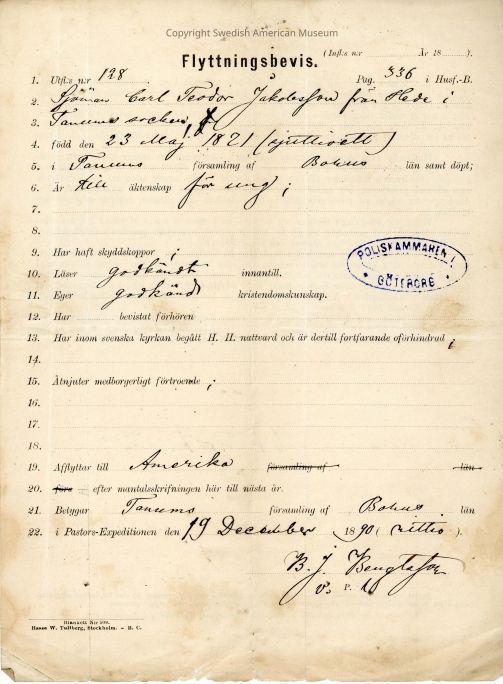 Copyright Swedish American Museum
Flyttningsbevis.
(Infl:s n:r År 18 ).
1. Utfl:s n:r 128. Pag. 336 i Husf.-B.
2. Sjöman Carl Teodor Jakobsson från Hede i
3. Tanums socken,
4. född den 23 Maj 1871 (sjuttioett)
5. i Tanums församling af Bohus län samt döpt;
6. Är till äktenskap för ung;
7.
8.
9. Har haft skyddskoppor;
10. Läser godkändt innantill.
11. Eger godkänd kristendomskunskap.
12. Har bevistat förhören
13. Har inom svenska kyrkan begått H. H. nattvard och är dertill fortfarande oförhindrad;
14.
15. Åtnjuter medborgerligt förtroende;
16.
17.
18.
19. Afflyttar till Amerika församling af län
20. före efter mantalsskrifningen här till nästa år.
21. Betygar Tanums församling af Bohus län
22. i Pastors-Expeditionen den 19 December 1890 (nittio).
B. J. Bengtsson
v. P.
POLISKAMMAREN I
GÖTEBORG
Blankett N:r 109.
Hasse W. Tullberg, Stockholm. – B. C.